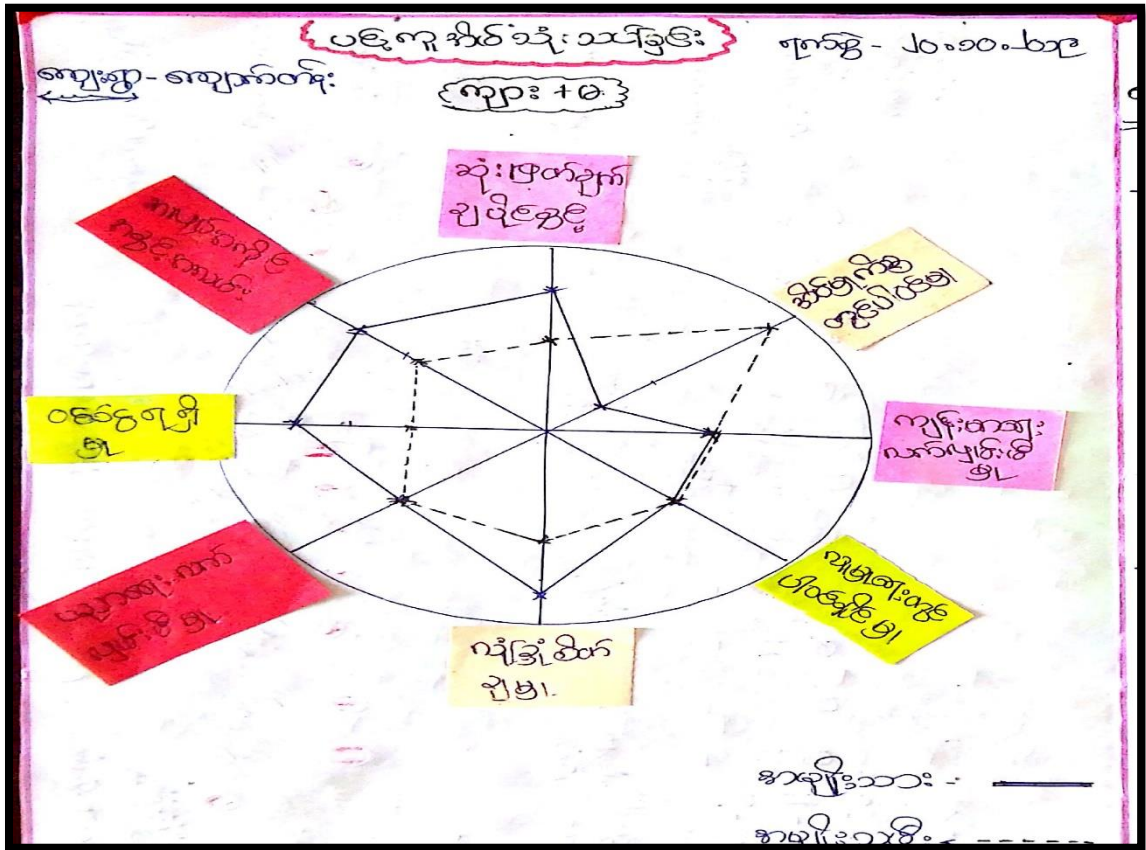 ပဉ္စကူအိပ်သုံးသပ်ခြင်း
ရက်စွဲ - ၂၀.၁၀.၂၀၁၉
ကျေးရွာ - ကျောက်တန်း
ကျား + မ
ဆုံးဖြတ်ချက်
ချပိုင်ခွင့်
အိမ်မှုကိစ္စ
တွင်ပါဝင်မှု
ကျန်းမာရေး
လက်လှမ်းမီ
မှု
လူမှုရေးတွင်
ပါဝင်နိုင်မှု
လုံခြုံစိတ်
ချမှု
ပညာရေးလက်
လှမ်းမီမှု
ဝင်ငွေရရှိ
မှု
အခွင့်အလမ်း
အမျိုးသား -
အမျိုးသမီး -